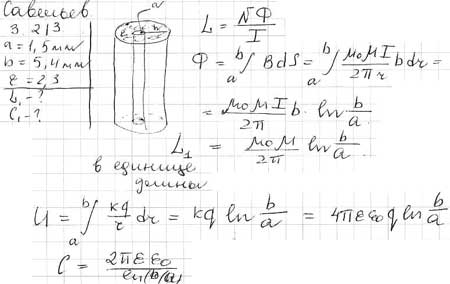 Савельев
3.213
a = 1,5 мм
b = 5,4 мм
ε = 2,3
L₁ - ?
C₁ - ?
a
L = NФ/I
Ф = a∫b BdS = a∫b μ₀μI/2πr b dr =
= μ₀μI/2π b · ln b/a
L₁ = μ₀μ/2π ln b/a
в единице
длины
U = a∫b kq/r dr = kq ln b/a = 4πεε₀q ln b/a
C = 2πεε₀/ln(b/a)